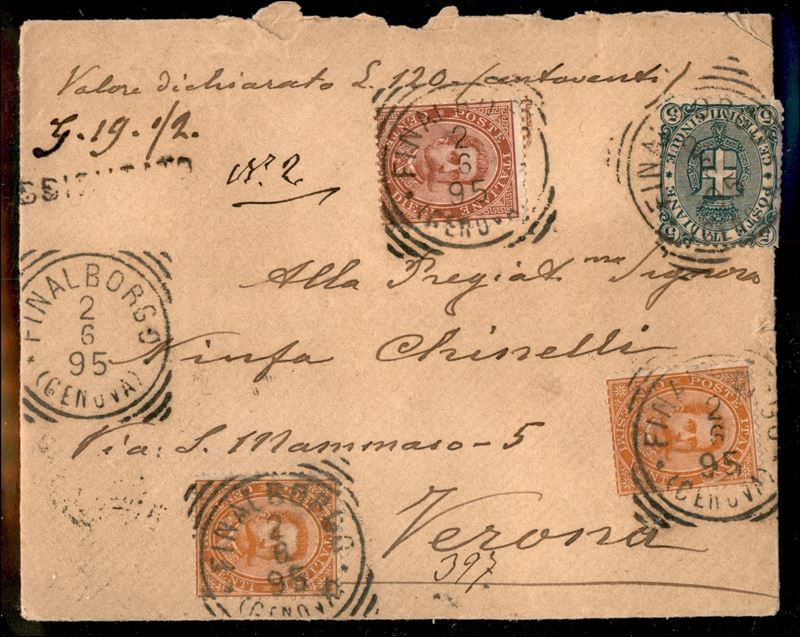 Valore dichiarato L. 120 (centoventi)
G. 19. 1/2.
N.r 2
FINALBORGO
2
6
95
(GENOVA)
DIECI POSTE ITALIANE
FINALBORGO
2
6
95
(GENOVA)
CENTESIMI CINQUE
POSTE ITALIANE
5
5
5
5
FINALBORGO
2
6
95
(GENOVA)
Alla Pregiat.ma Signora
Ninfa Chinelli
Via: S. Mammaso - 5
Verona
397
POSTE ITALIANE
FINALBORGO
2
6
95
(GENOVA)
FINALBORGO
2
6
95
(GENOVA)